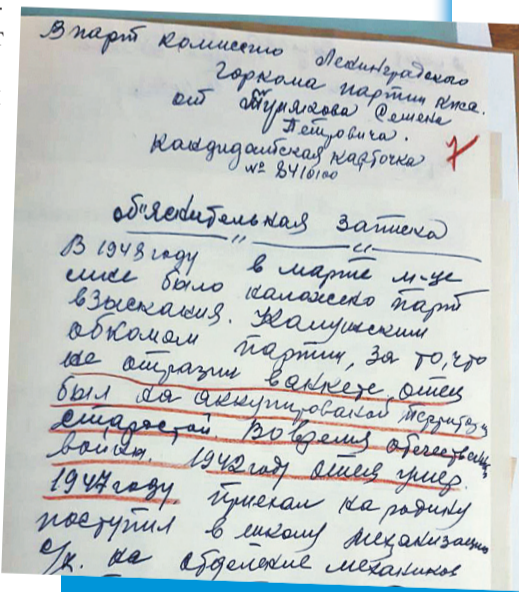 В парт комиссию Ленинградского
Горкома партии кпсс.
от Турякова Семена
Петровича.
Кандидатская карточка
№ 8416100
7
об"яснительная записка
В 1948 году в марте м-це
мне было наложено парт
взыскания. Калужским
обкомом партии, за то, что
не отразил в анкете, отец
был на аккупированой территории
старостой. Во время отечествен
войны. 1942 году отец умер.
1947 году приехал на родину
поступил в школу механизации
с/х. на отделение механиков